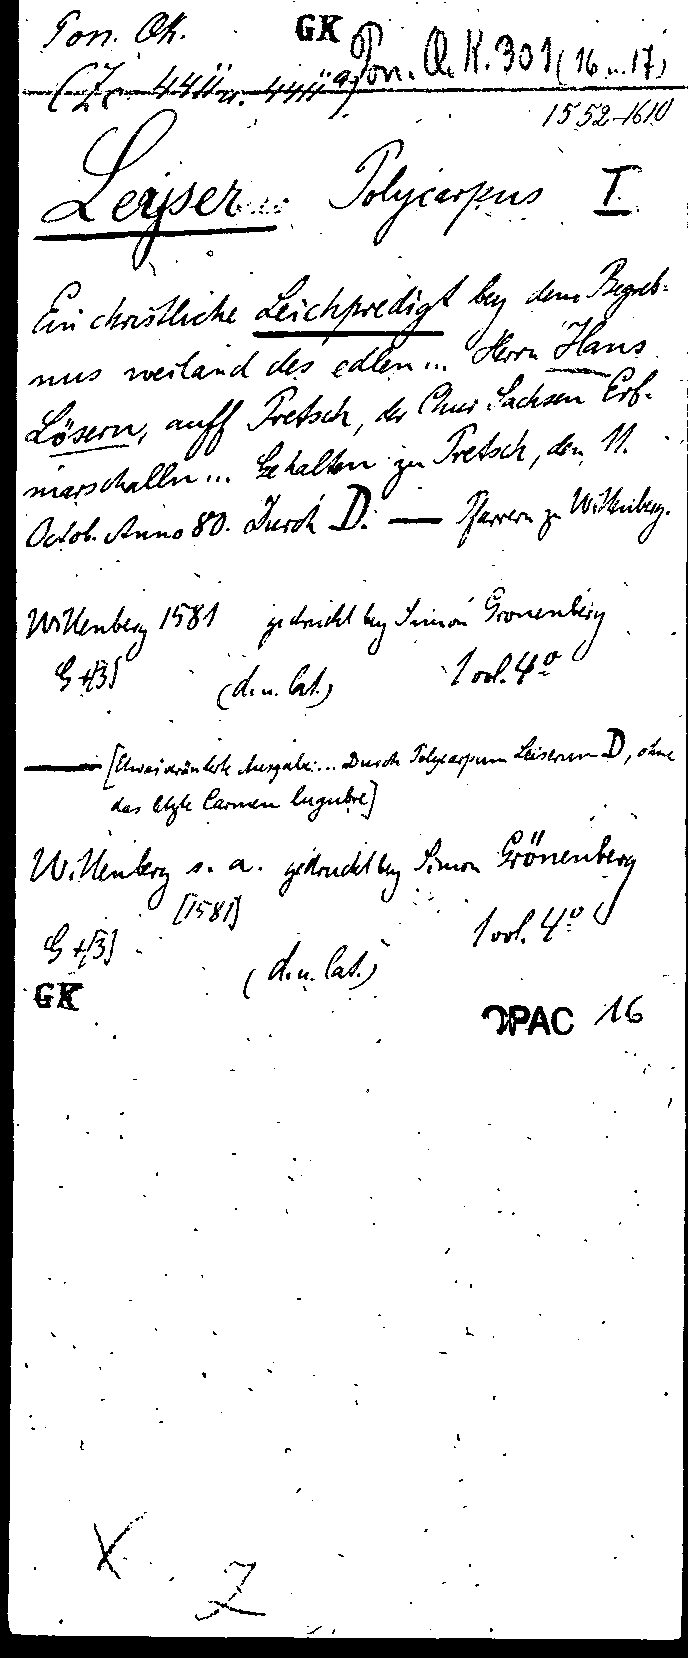 Pon. Qk. GK Pon. Qu. K. 301 (16 u. 17)
1552-1610
Leyser Polycarpus I.
Ein christliche Leichpredigt bey dem Begreb-
nus weiland des edlen... Herrn Hans
Lösern, auff Pretsch, der Chur Sachsen Erb-
marschalln... Gehalten zu Pretsch, den 11.
Octob. Anno 80. Durch D. — Pfarrern zu Wittenberg.
Wittenberg 1581 gedruckt bey Simon Gronenberg
G + [3] (d. u. lat.) 1 vol. 4º
— [Etwas veränderte Ausgabe:... Durch Polycarpum Leiserum D, ohne
das letzte Carmen lugubre]
Wittenberg s. a. gedruckt bey Simon Grönenberg
[1581]
G + [3] (d. u. lat.) 1 vol. 4º
GK OPAC 16
X Z